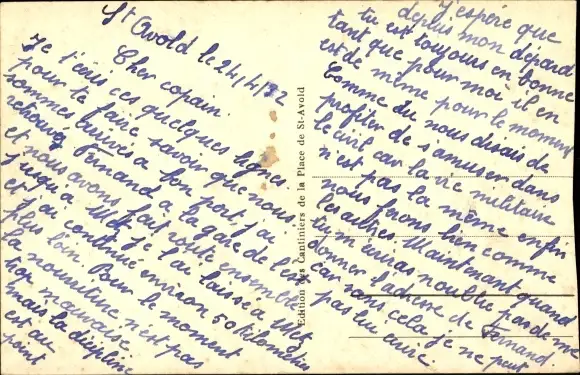 St Avold le 24/4/32
Cher copain.
Je t'écris ces quelques lignes
pour te faire savoir que nous
sommes arrivé a bon port, j'ai
retrouvé Fernand a la gare de l'est
et nous avons fait route ensemble
jusqu'a Metz je l'ai laissé a Metz
et j'ai continué environ 50 kilomètres
plus loin. Pour le moment
la nourriture n'est pas
trop mauvaise
mais la dicipline
est au
point
Edition des Cantiniers de la Place de St-Avold
J'espère que
depuis mon départ
tu est toujours en bonne
tant que pour moi il en
est de même pour le moment
Comme du nous disais de
profiter de s'amuser dans
le civil car la vie militaire
n'est pas la même enfin
nous ferons bien comme
les autres Maintenant quand
tu m'écriras n'oublie pas de me
donner l'adresse de Fernand
car sans cela je ne peut
pas lui écrire.